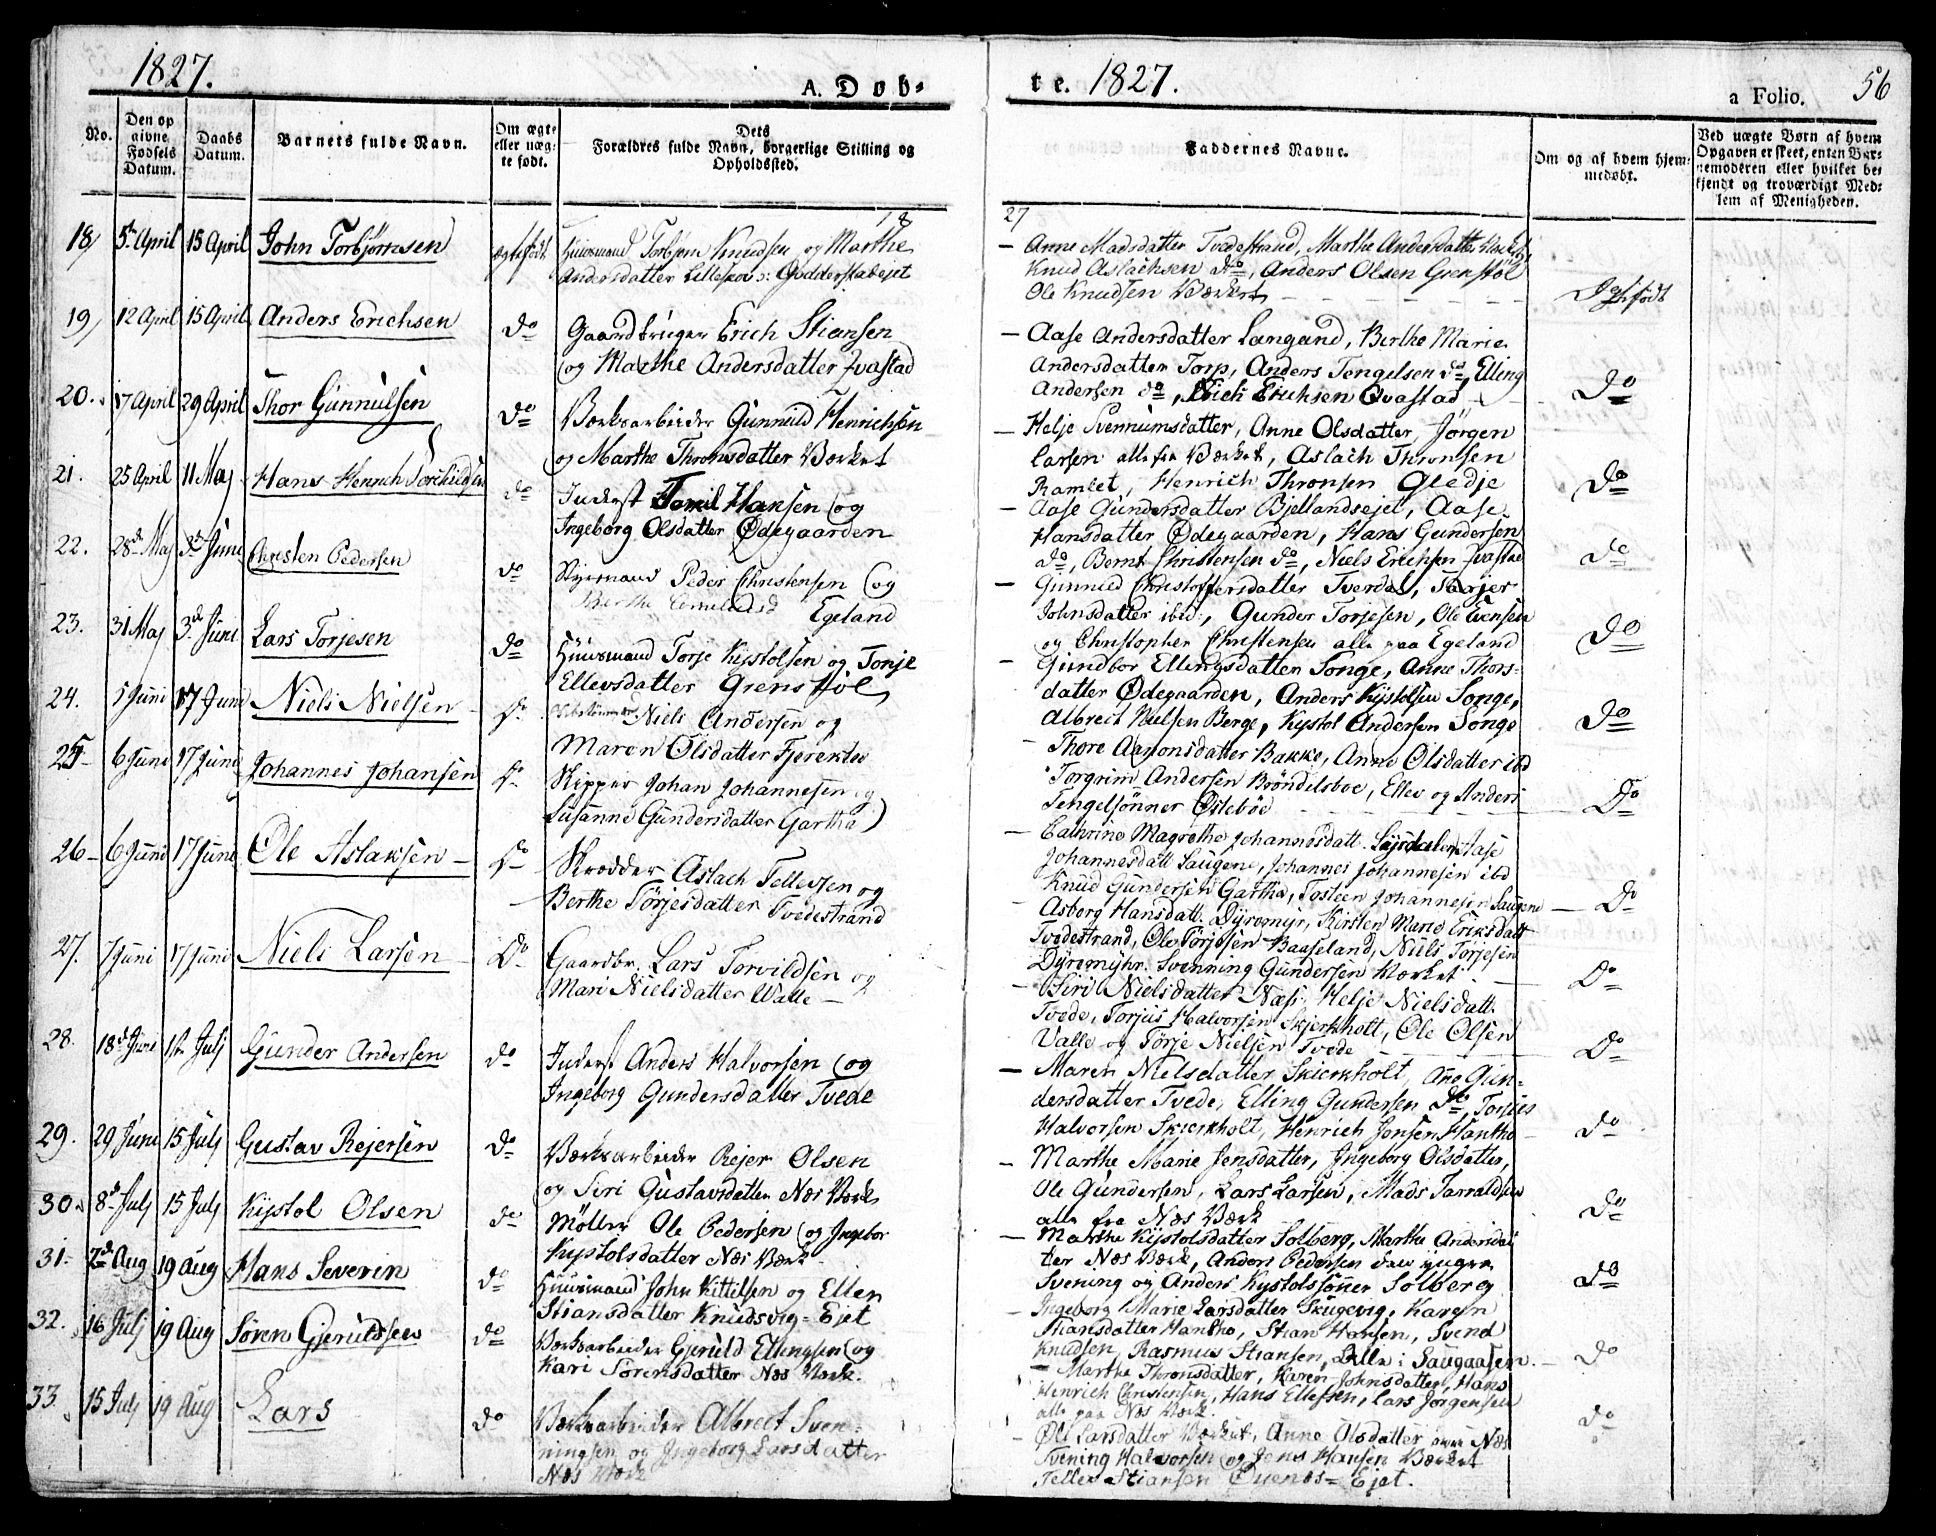 1827.
A. Døb-
No.
Den op
givne
Fødsels
Datum.
Daabs
Datum.
Barnets fulde Navn.
Om ægte
eller uæg-
te født.
Dets
Forældres fulde Navn, borgerlige Stilling og
Opholdssted.
18
18/ 5te April 15 April John Torbjørnsen ægtefødt Huusmand Torbjørn Knudsen og Marthe
Andersdatter Lilleskov : Godderstadejet
19/ 12 April 15 April Anders Erichsen do Gaardbruger Erich Stiansen
og Marthe Andersdatter Qvastad
20. 17 April 29 April Thor Gunnulsen do Værksarbeider Gunnuld Henrichsen
og Marthe Thronsdatter Værket
21. 25 April 11 Maj Hans Henrich Torchildsen do Inderst Hansen og
Ingeborg Olsdatter Ødegaarden
22. 28de Maj 3de Juni Christen Pedersen do Styrmand Peder Christensen og
Berthe Egeland
23. 31 Maj 3de Juni Lars Torjesen do Huusmand Torje Kystolsen og Tonje
Ellevsdatter Grenstøl
24. 5 Juni 17 Juni Niels Nielsen do Niels Andersen og
Maren Olsdatter Fjerekleo
25 6 Juni 17 Juni Johannes Johansen do Skipper Johan Johannesen og
Susanne Gundersdatter Gartha
26 6 Juni 17 Juni Ole Aslaksen do Skrædder Aslach Tellevsen og
Berthe Törjesdatter Tvedestrand
27. 7 Juni 17 Juni Niels Larsen Do Gaardbr. Lars Torvildsen og
Mari Nielsdatter Walle
28. 18de Juni 1ste Julj Gunder Andersen do Inderst Anders Halvorsen og
Ingeborg Gundersdatter Tvede
29. 29 Juni 15 Julj Gustav Rejersen do Værksarbeider Rejer Olsen
og Siri Gustavsdatter Næs Værk
30. 8de Julj 15 Julj Kystol Olsen do Møller Ole Pedersen og Ingebor
Kystolsdatter Næs Værk
31. 2de Aug 19 Aug Hans Severin do Huusmand John Kittilsen og Ellen
Stiansdatter Knudsvig-Ejet
32. 16 Julj 19 Aug Søren Gjeruldsen do Værksarbeider Gjeruld Ellingsen og
Kari Sörensdatter Næs Værk.
33. 15 Julj 19 Aug Lars do Værksarbeider Albrect Sven-
ningsen og Ingeborg Larsdatter
Næs Værk
te. 1827.
a Folio. 56
Faddernes Navne.
Om og af hvem hjem-
medøbt.
Ved uægte Børn af hvem
Opgaven er skeet, enten Bar-
nemoderen eller hvilket be-
kjendt og troværdigt Med-
lem af Menigheden.
27
— Anne Madsdatter Tvedestrand, Marthe Andersdatter
Knud Aslachsen do, Anders Olsen Grenstøl
Ole Knudsen Værket
— Aase Andersdatter Langand, Berthe Marie
Andersdatter Torp, Anders Tengelsen do, Elling
Andersen do, Erich Erichsen Qvastad Do
— Helje Svennumsdatter, Anne Olsdatter, Jörgen
Larsen alle fra Værket, Aslach Thronsen
Ramlet, Henrich Thronsen Gledje Do
— Aase Gundersdatter Bjellandsejet, Aase
Hansdatter Ødegaarden, Hans Gundersen
do, Bernt Christensen do, Niels Erichsen Qvastad Do
— Gunnild Christoffersdatter Tverdal, Tarjer
Johnsdatter ibid, Gunder Torjesen, Ole Evensen
og Christopher Christensen alle paa Egeland Do
— Gundbor Ellingsdatter Songe, Anne Thors-
datter Ødegaarden, Anders Kystolsen Songe,
Albrect Nielsen Berge, Kystol Andersen Songe Do
— Thore Aanonsdatter Bakke, Anne Olsdatter ibd
Torgrim Andersen Bröndelsboe, Ellev og Anders
Tengelsönner Östeböe Do
— Cathrine Magrethe Johannesdatt. Lyndalen, Aase
Johannesdatt Saugene, Johannes Johannesen ibd
Knud Gundersen Gartha, Tosteen Johannesen Saugene Do
— Asborg Hansdatt. Dyremyr, Kirsten Marie Eriksdatt
Tvedestrand, Ole Törjesen Baaseland, Niels Törjesen
Dyremyhr. Svenning Gundersen Værket Do
— Siri Nielsdatter Næs, Helje Nielsdatt.
Tvede, Torjus Halvorsen Skjerkholt, Ole Olsen
Valle og Törje Nielsen Tvede Do
— Maren Nielsdatter Skierkholt, Ane Gun-
dersdatter Tvede, Elling Gundersen do, Torjus
Halvorsen Skierkholt, Henrich Jonsen Hantho do
— Marthe Marie Jensdatter, Ingeborg Olsdatter,
Ole Gundersen, Lars Larsen, Mads Tarraldsen
alle fra Næs Værk do
— Marthe Kystolsdatter Solberg, Marthe Andersdat
ter Næs Værk, Anders Pedersen den yngre,
Svening og Anders Kystolssönner Solberg do
— Ingeborg Marie Larsdatter Skugevig, Karen
Thansdatter Hantho, Stian Hansen, Svend
Knudsen, Rasmus Stiansen, alle i Saugaasen. do
— Marthe Thronsdatter, Karen Johnsdatter, Hans
Henrich Christensen, Hans Ellefsen, Lars Jørgensen
alle paa Næs Værk. do
— Larsdatter Værket, Anne Olsdatter Næs
Svening Halvorsen og Jens Hansen Værket
Tellev Stiansen Ejet.